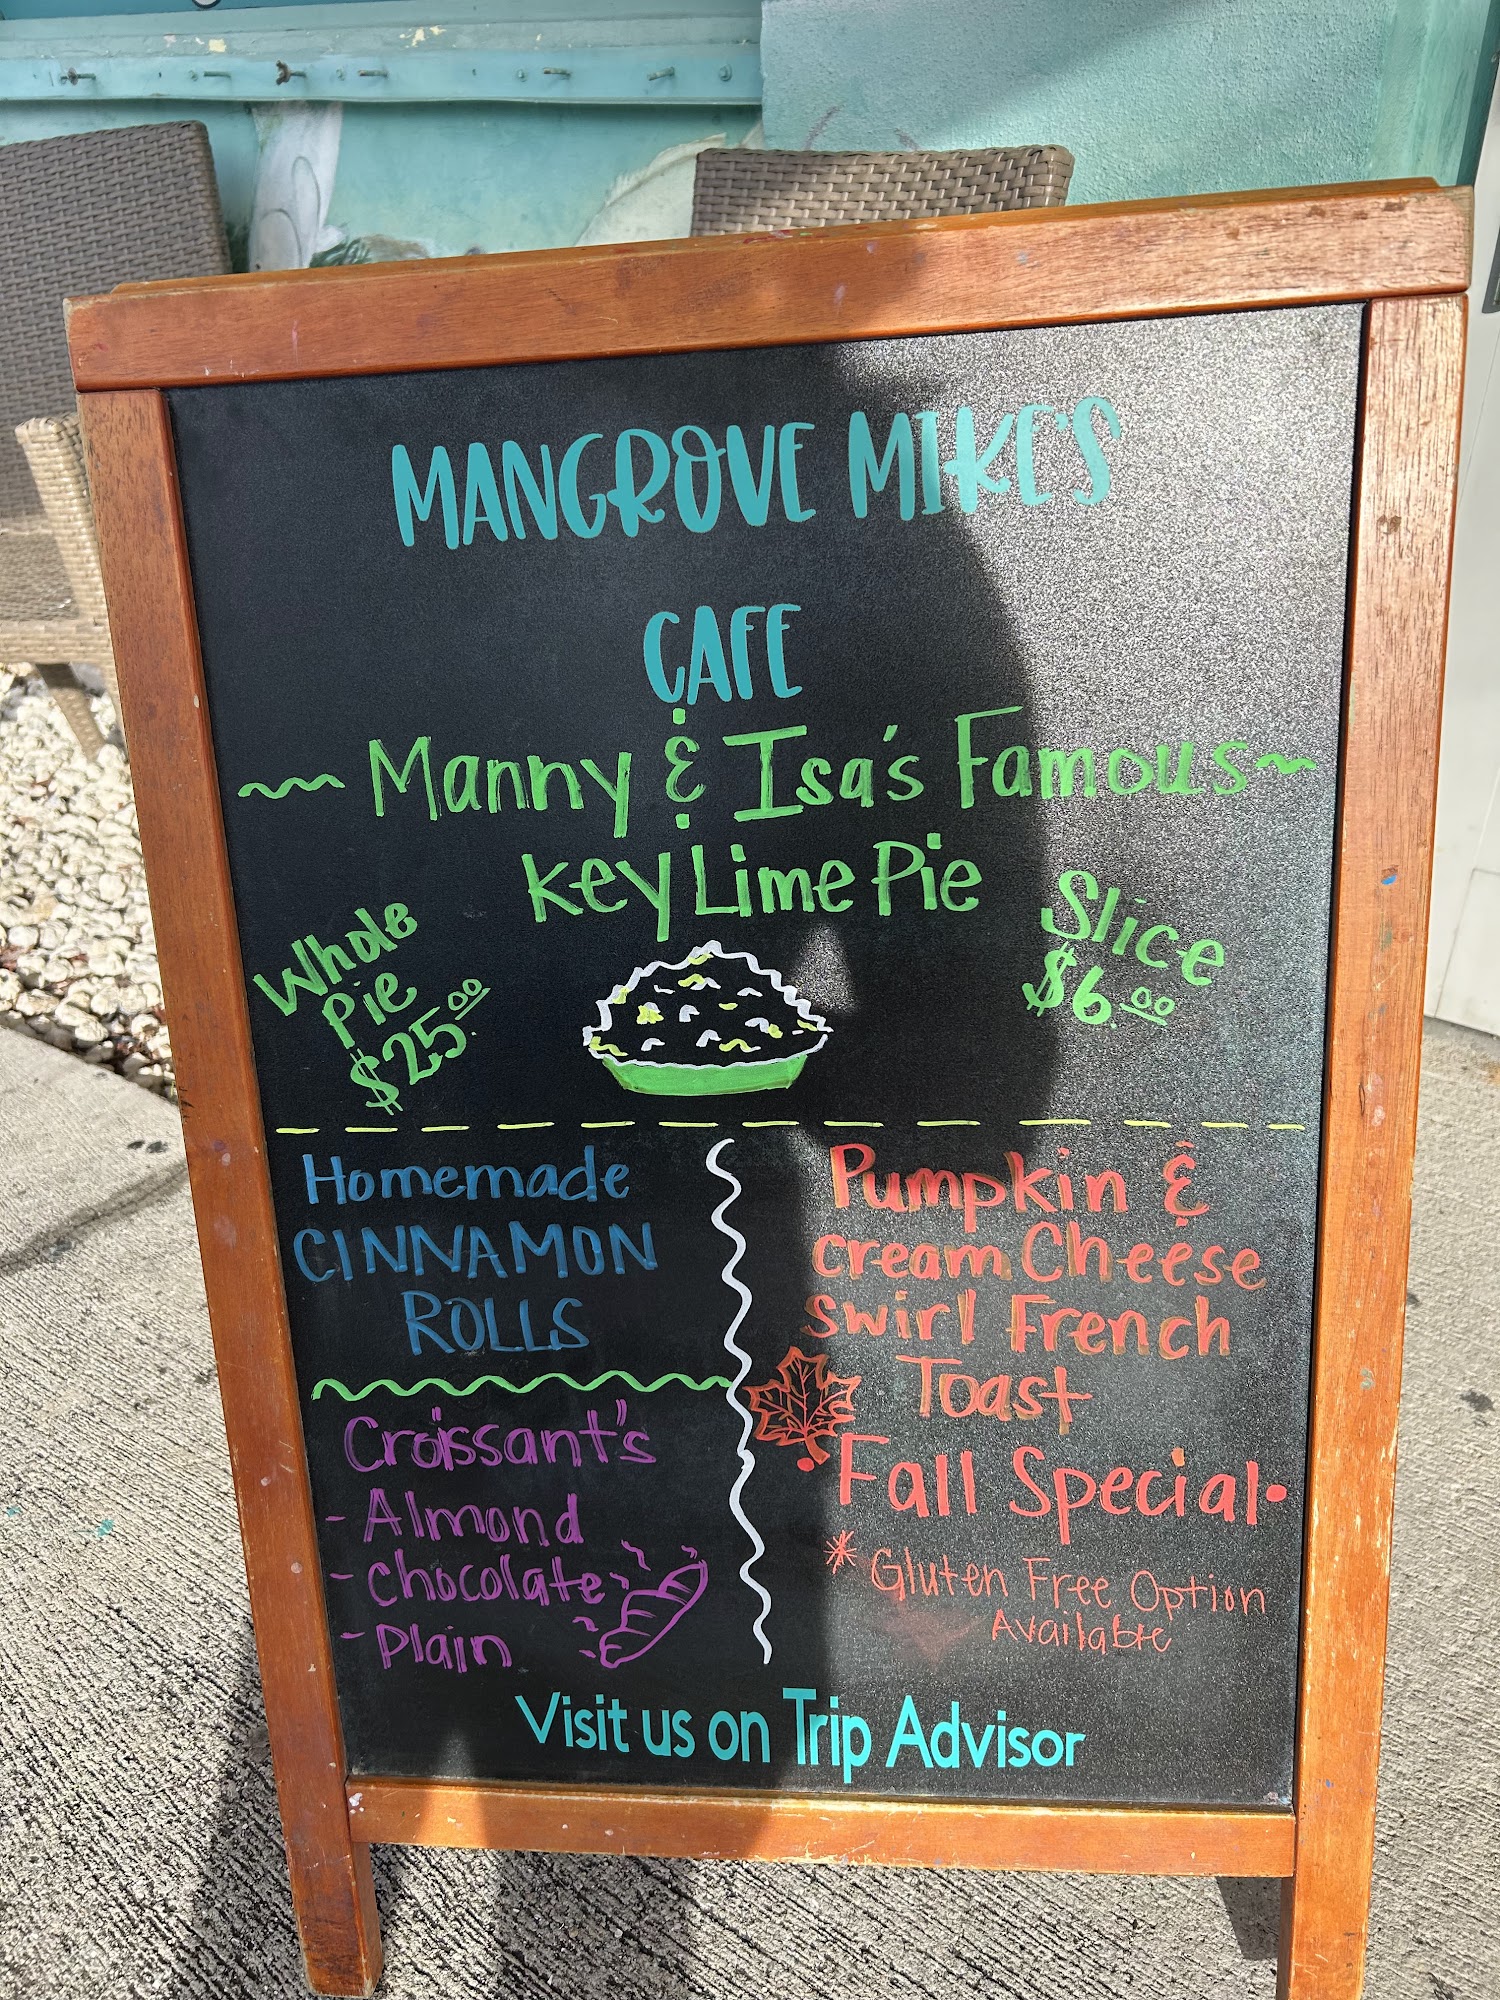 MANGROVE MIKE'S
CAFE
~ Manny & Isa's Famous ~
Key Lime Pie
Whole
Pie
$25.00
Slice
$6.00
Homemade
CINNAMON
ROLLS
Croissant's
- Almond
- Chocolate
- Plain
Pumpkin &
cream Cheese
swirl French
Toast
• Fall Special •
* Gluten Free Option
Available
Visit us on Trip Advisor